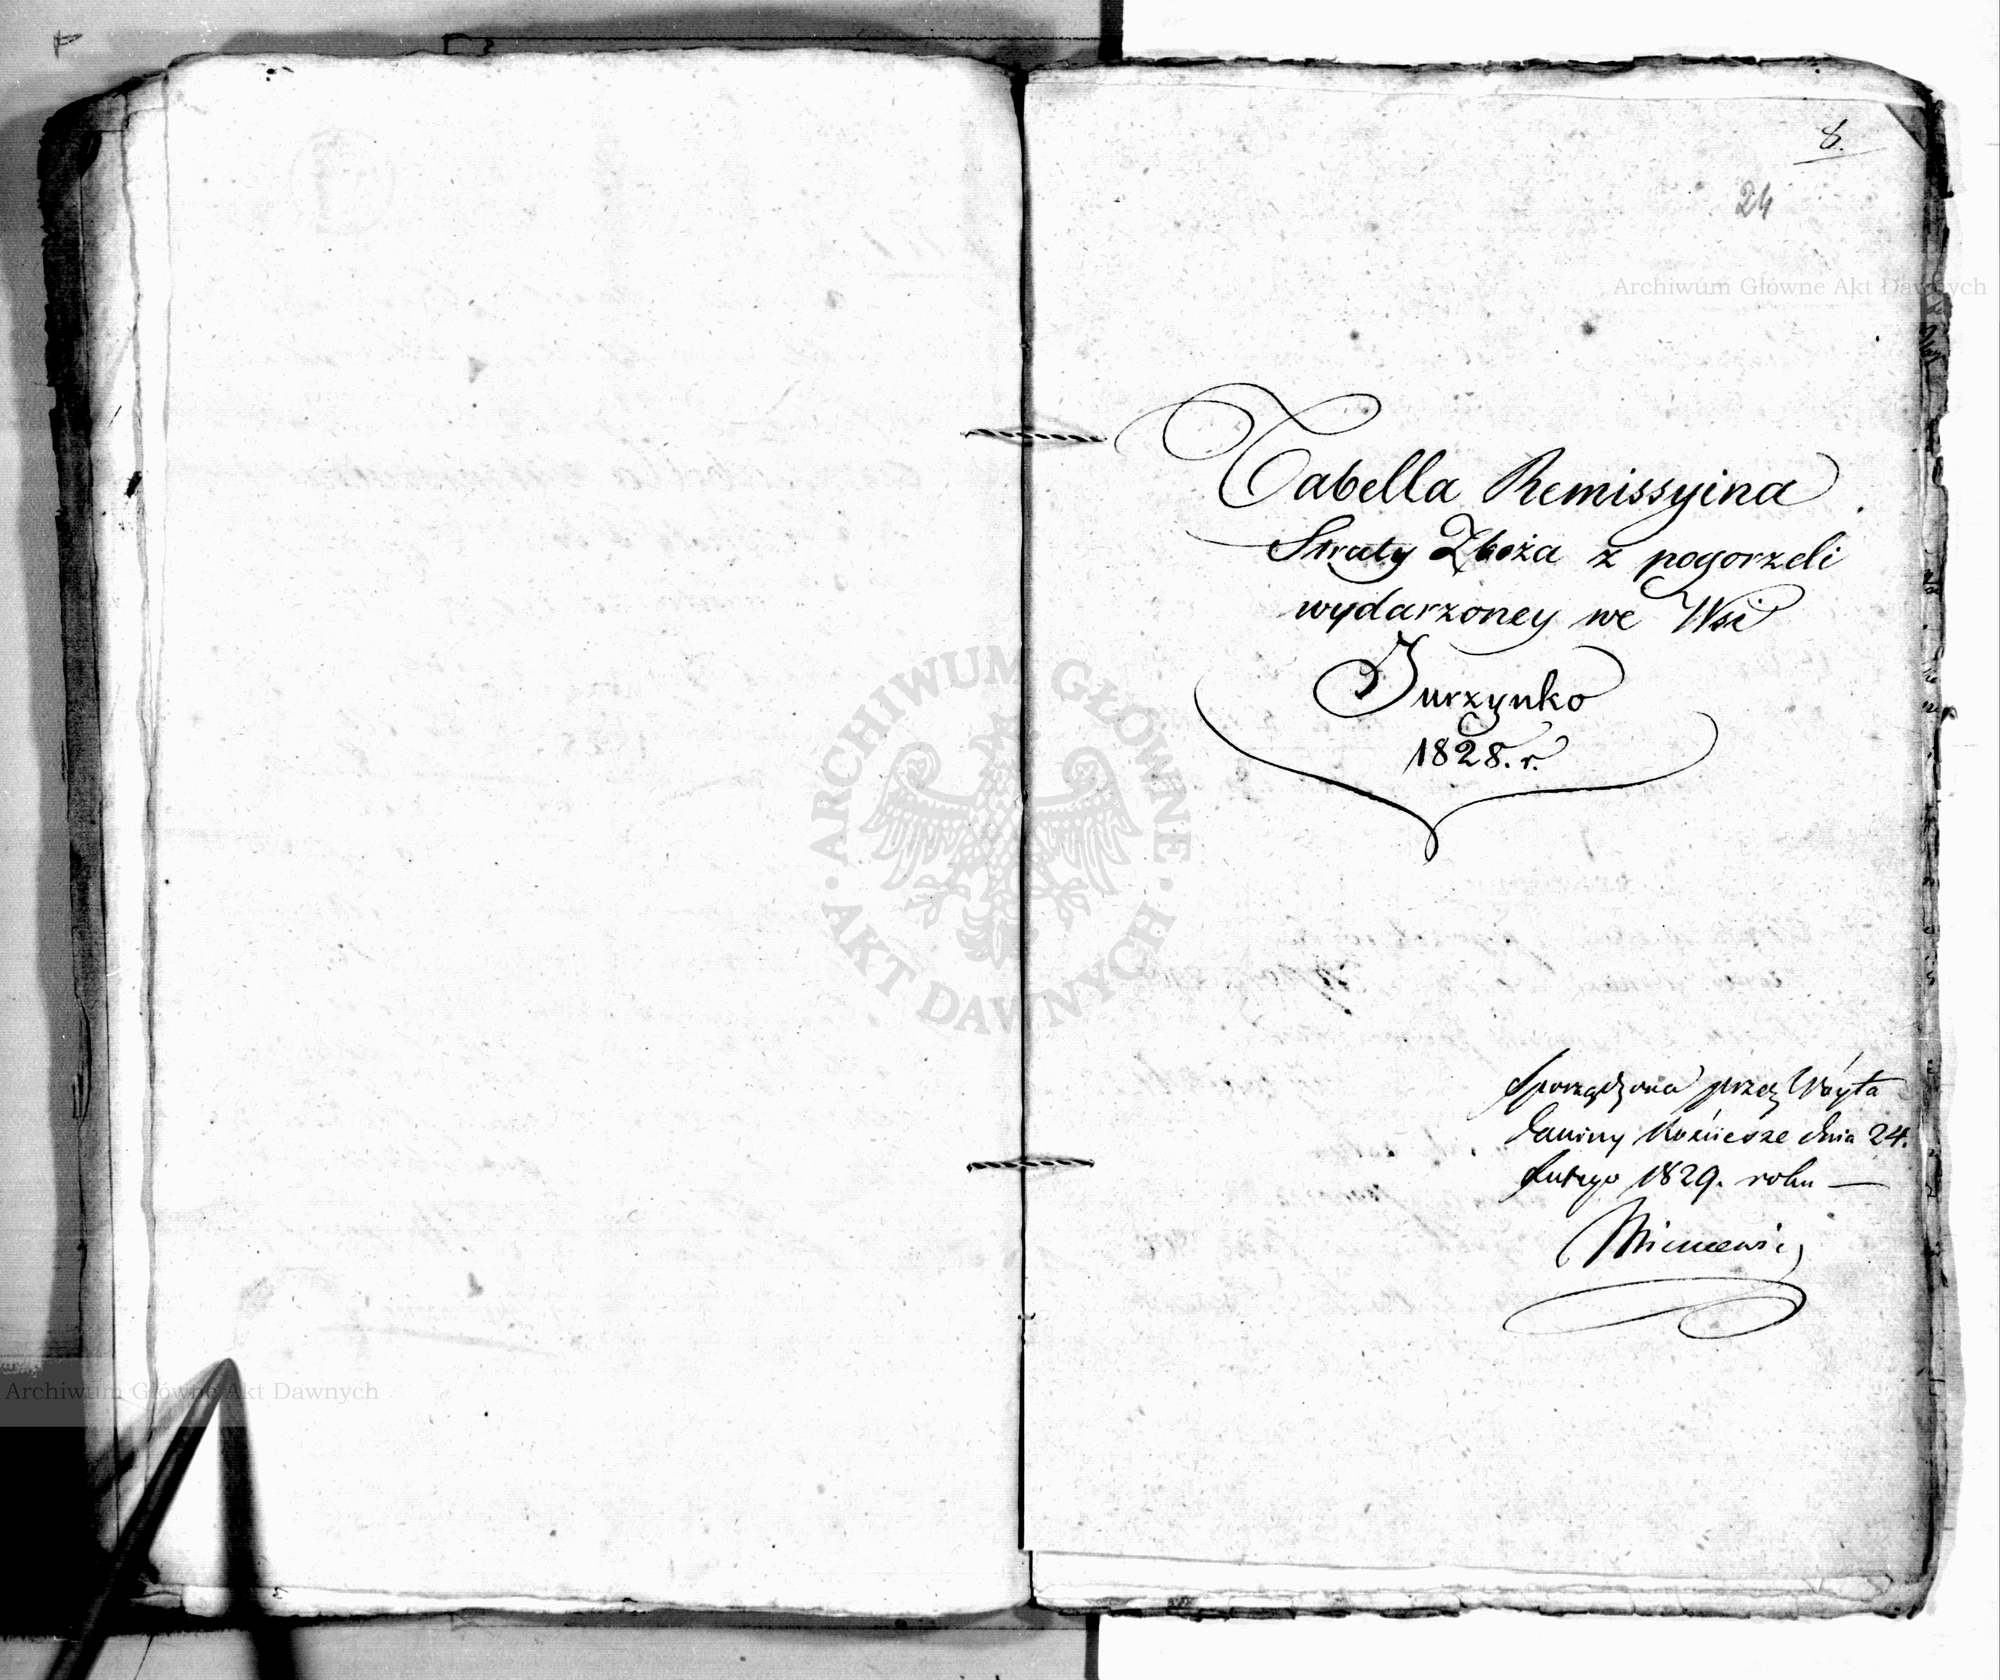 8.
24
Archiwum Główne Akt Dawnych
Tabella Remissyina
Straty Zboża z pogorzeli
wydarzoney we Wsi
Jurzynko
1828. r.
ARCHIWUM GŁÓWNE
AKT DAWNYCH
Sporządzona przez Wóyta
Gminy dnia 24.
Lutego 1829. roku —
Archiwum Główne Akt Dawnych